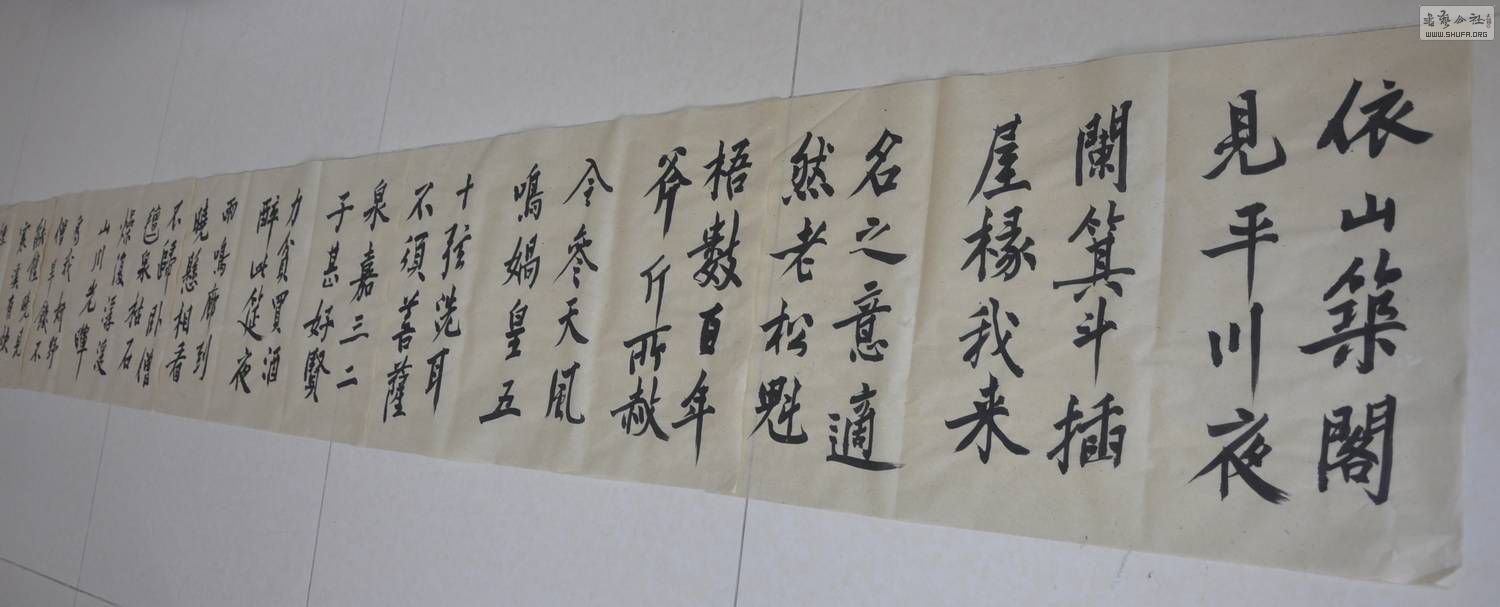 依山築閣
見平川夜
闌箕斗插
屋椽我来
名之意適
然老松魁
梧數百年
斧斤所赦
令參天風
鳴媧皇五
十弦洗耳
不須菩薩
泉嘉三二
子甚好賢
力貧買酒
醉此筵夜
雨鳴廊到
曉懸相看
不歸卧僧
氊泉枯石
燥復潺湲
山川光輝
書藝公社
WWW.SHUFA.ORG